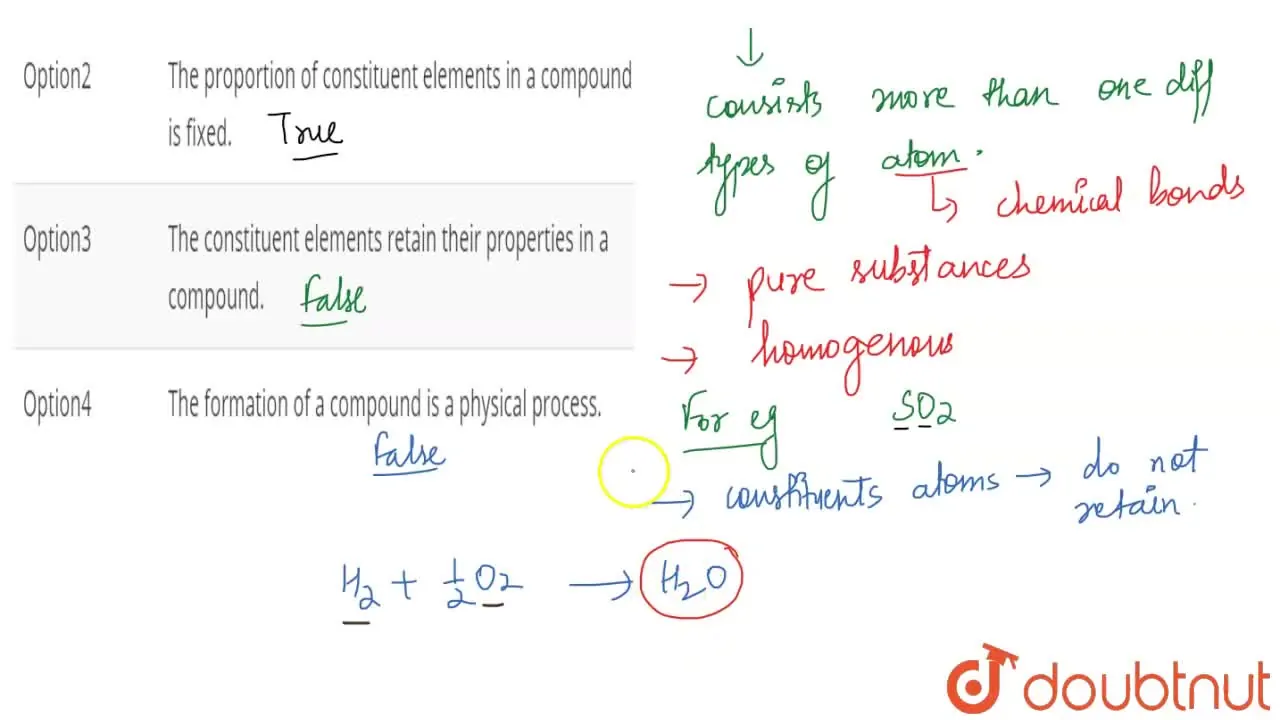 Option2 The proportion of constituent elements in a compound
is fixed. True
Option3 The constituent elements retain their properties in a
compound. false
Option4 The formation of a compound is a physical process.
false
H2 + 1/2 O2 → H2O
↓
consists more than one diff
types of atom.
↳ chemical bonds
→ pure substances
→ homogenous
For eg SO2
→ constituents atoms → do not
retain.
doubtnut